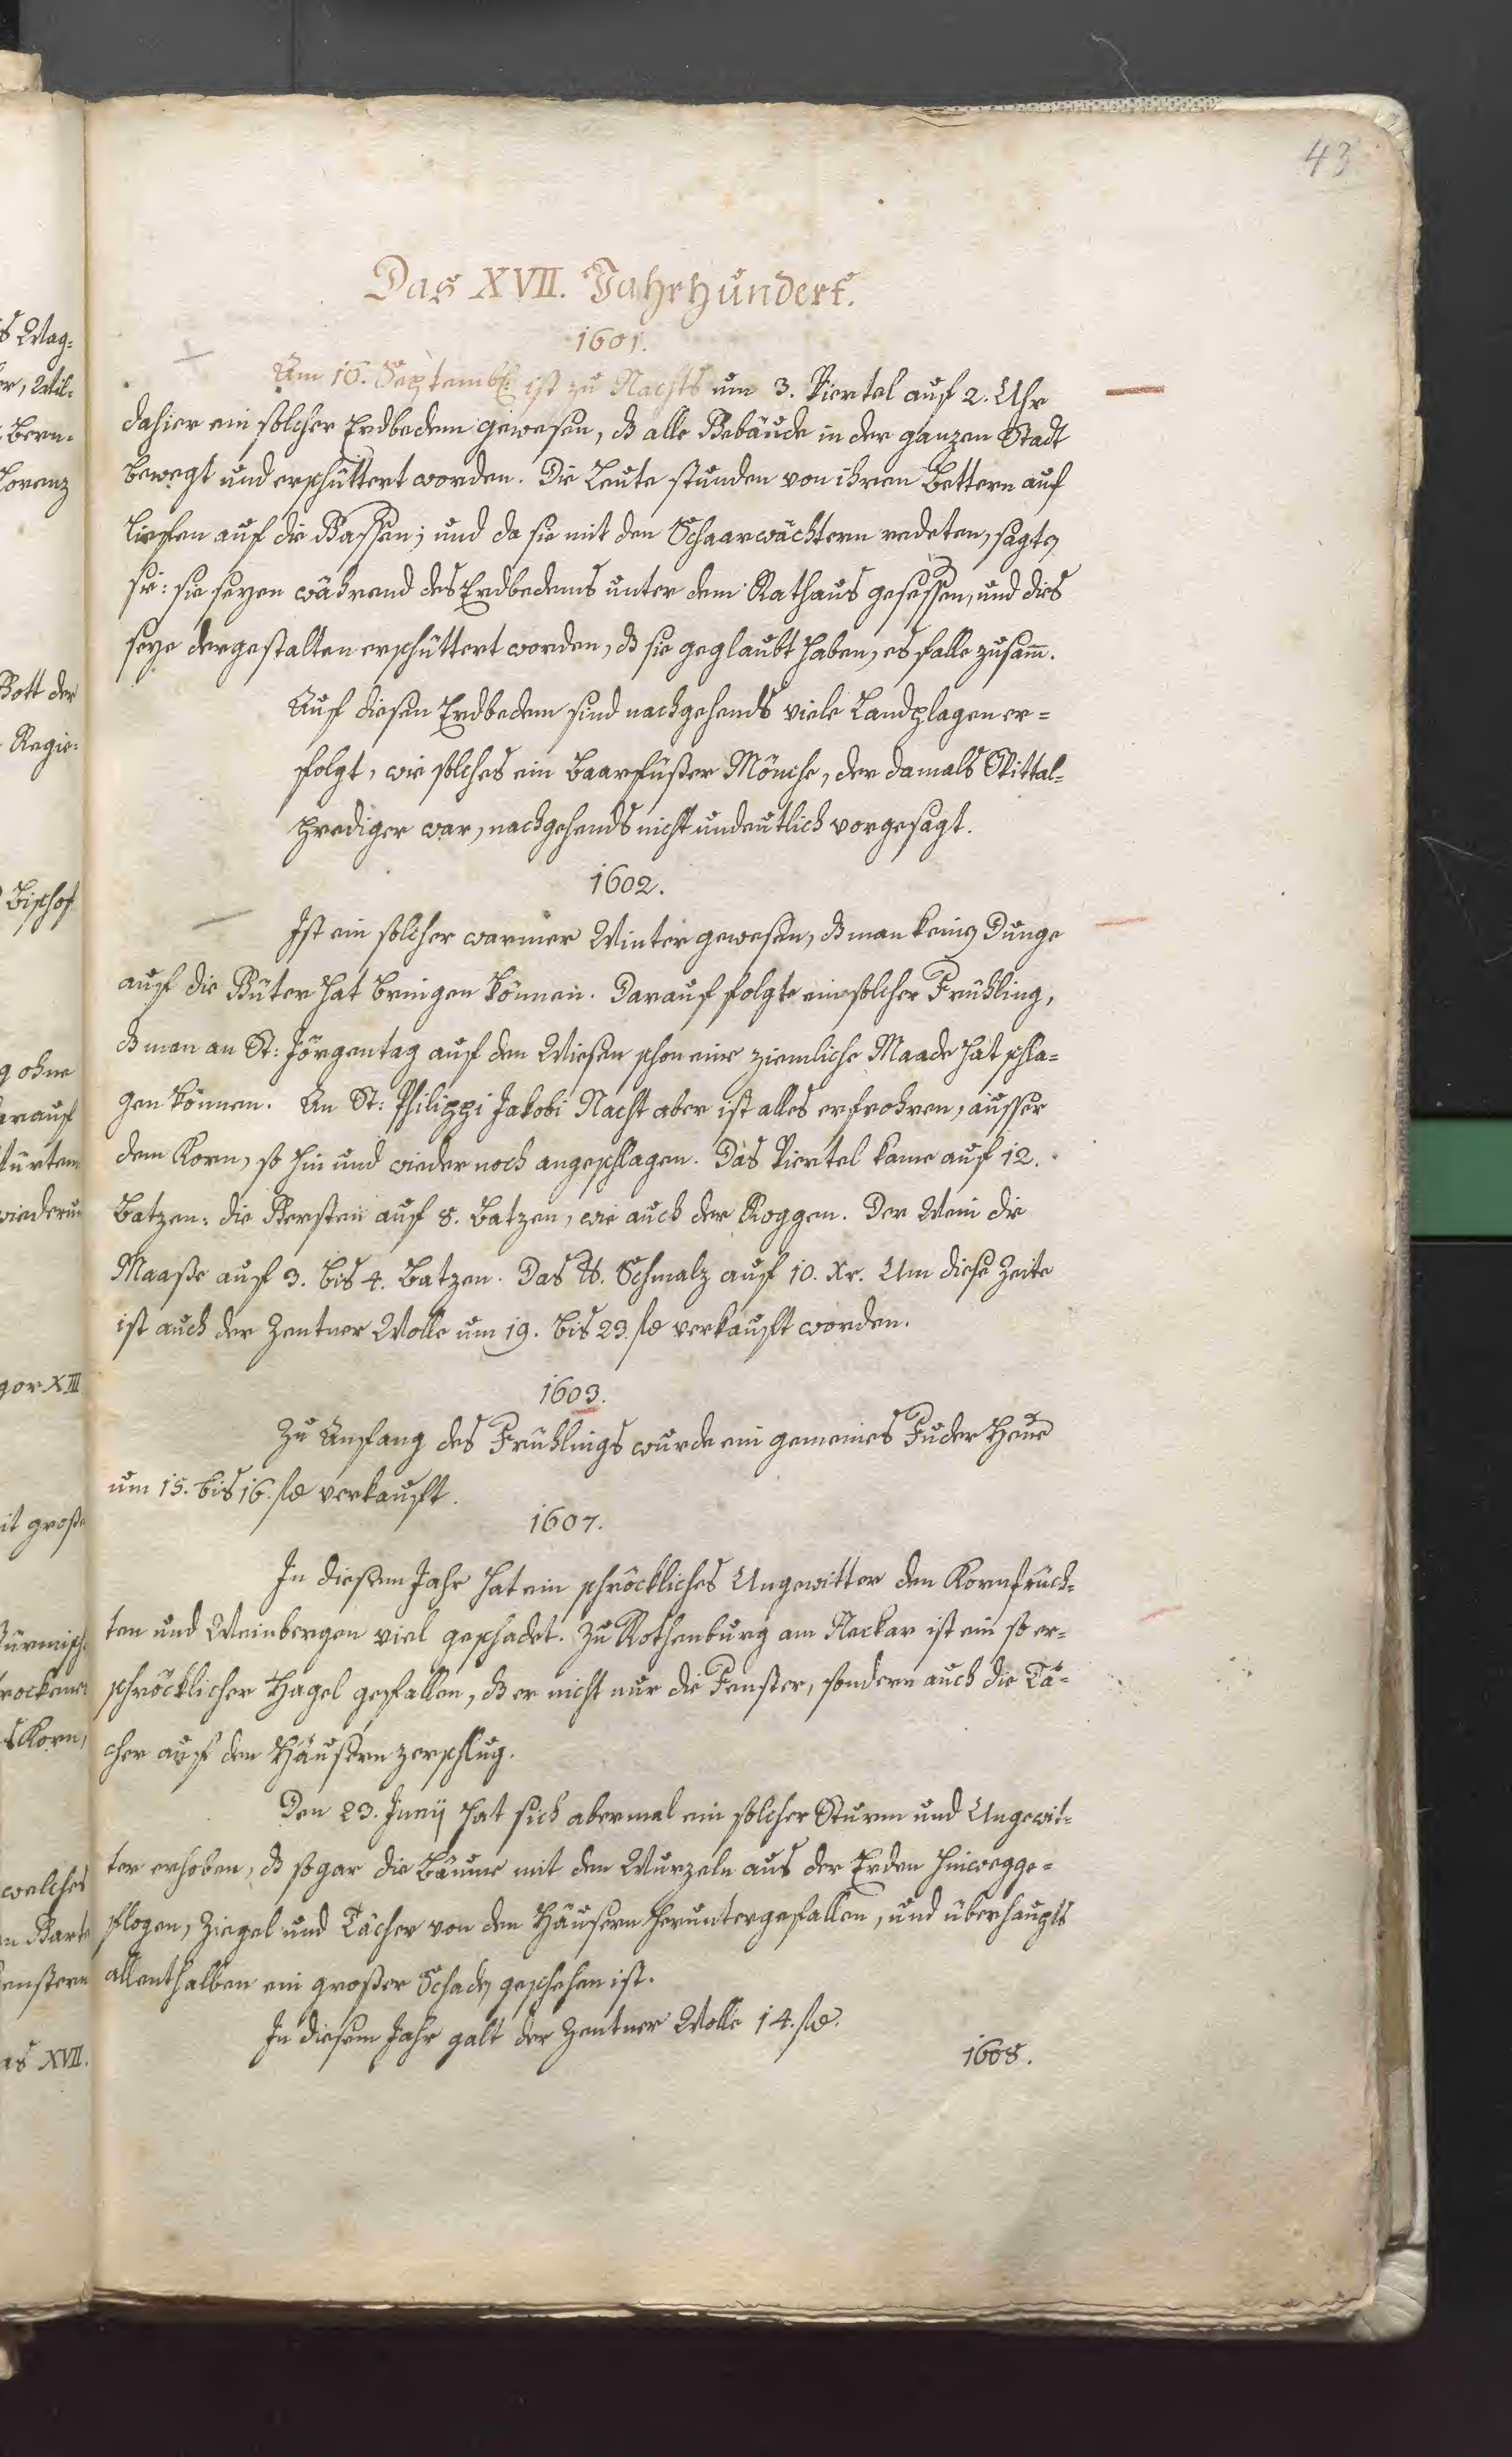 43
Das XVII. Jahrhundert.
1601.
Am 16. Septemb: ist zu Nachts um 3. Viertel auf 2. Uhr
dahier ein solcher Erdbedem gewesen, dß alle Gebäude in der ganzen Stadt
bewegt und erschüttert worden. Die Leute stunden von ihren Bettern auf
liefen auf die Gassen; und da sie mit den Schaarwächtern redeten, sagten
sie: sie seyen während des Erdbedems unter dem Rathaus gesessen, und dies
seye dergestalten erschüttert worden, dß sie geglaubt haben, es falle zusam̄.
Auf diesen Erdbedem sind nachgehends viele Landplagen er=
folgt, wie solches ein Baarfüßer Mönche, der damals Spittal=
prediger war, nachgehends nicht undeutlich vorgesagt.
1602.
Ist ein solcher warmer Winter gewesen, dß man keinen Dunge
auf die Güter hat bringen können. Darauf folgte ein solcher Frühling,
dß man an St: Jörgentag auf den Wiesen schon eine ziemliche Maade hat schla=
gen können. An St: Philippi Jakobi Nacht aber ist alles erfrohren, ausser
dem Korn, so hin und wieder noch angeschlagen. Das Viertel kame auf 12.
Batzen: die Gersten auf 8. Batzen, wie auch der Roggen. Der Wein die
Maaße auf 3. bis 4. Batzen. Das ℔. Schmalz auf 10. Xr. Um diese Zeite
ist auch der Zentner Wolle um 19. bis 23. fl verkauft worden.
1603.
Zu Anfang des Frühlings wurde ein gemeines Fuder Heue
um 15. bis 16. fl verkauft.
1607.
In diesem Jahr hat ein schröckliches Ungewitter den Kornfrüch=
ten und Weinbergen viel geschadet. Zu Rothenburg am Neckar ist ein so er=
schröcklicher Hagel gefallen, dß er nicht nur die Fenster, sondern auch die Tä=
cher auf den Häusern zerschlug.
Den 23. Junij hat sich abermal ein solcher Sturm und Ungewit=
ter erhoben, dß sogar die Bäume mit den Wurzeln aus der Erden hinwegge=
flogen, Ziegel und Tächer von den Häusern heruntergefallen, und überhaupts
allenthalben ein großer Schaden geschehen ist.
In diesem Jahr galt der Zentner Wolle 14. fl.
1608.